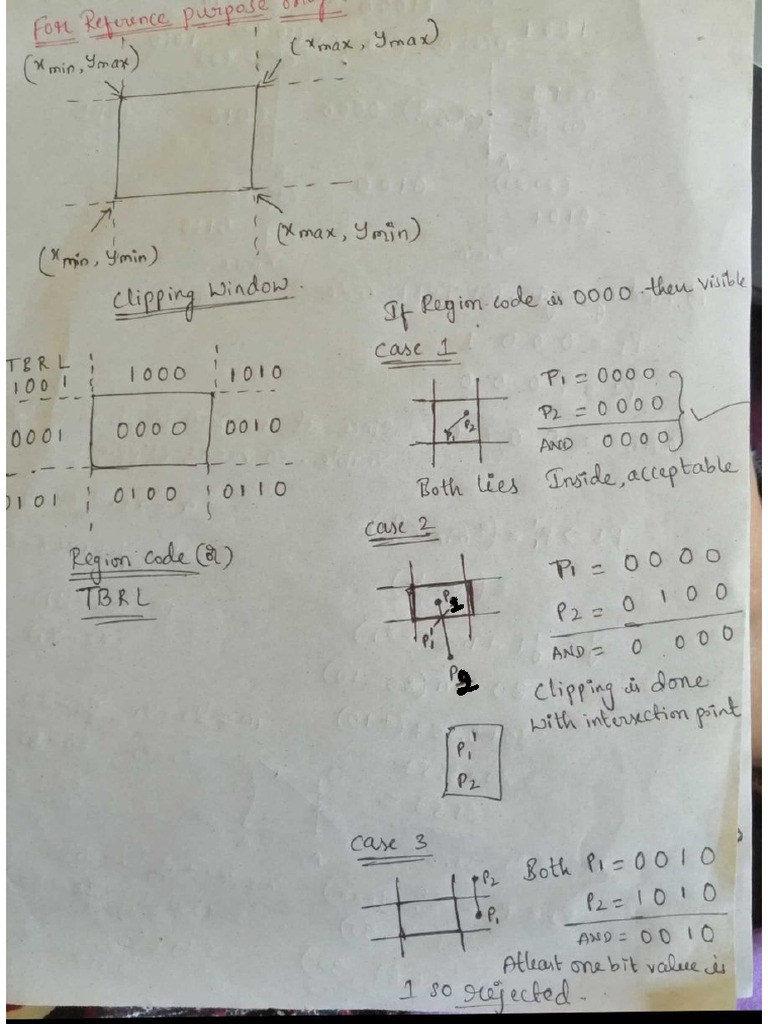 For Reference purpose only.
(xmin, ymax)
(xmax, ymax)
(xmin, ymin)
(xmax, ymin)
Clipping Window.
TBRL
1001 1000 1010
0001 0000 0010
0101 0100 0110
Region code (or)
TBRL
If Region code is 0000 then visible
Case 1
P1 P2
P1 = 0000
P2 = 0000
AND 0000
Both lies Inside, acceptable
Case 2
P1
P1'
P2
P1 = 0000
P2 = 0100
AND = 0000
Clipping is done
with intersection point
P1'
P2
Case 3
P2
P1
Both P1 = 0010
P2 = 1010
AND = 0010
Atleast one bit value is
1 so rejected.